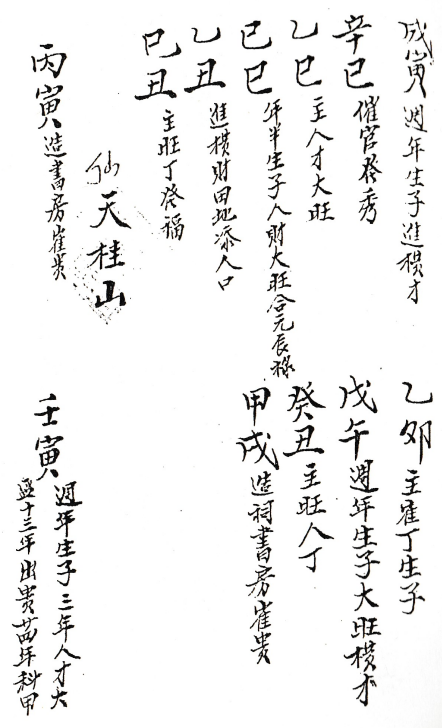 戊寅 週年生子進横才
辛巳 催官發秀
乙巳 主人才大旺
己巳 年半生子人財大旺合元辰祿
乙丑 進横財田地添人口
巳丑 主旺丁發福
丙寅 造書房崔貴
仙天桂山
乙卯 主崔丁生子
戊午 週年生子大旺横才
癸丑 主旺人丁
甲戌 造祠書房崔貴
壬寅 週年生子三年人才大
盛十三年出貴廿四年科甲